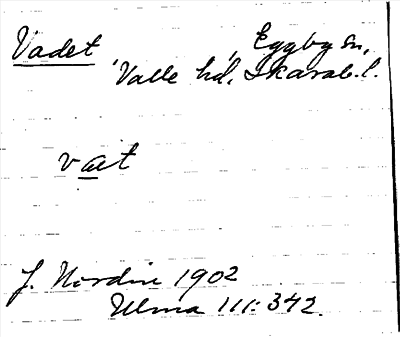 Vadet, Eggby sn,
Valle hd, Skarab.l.
vat
J. Nordin 1902
Ulma 111:342.